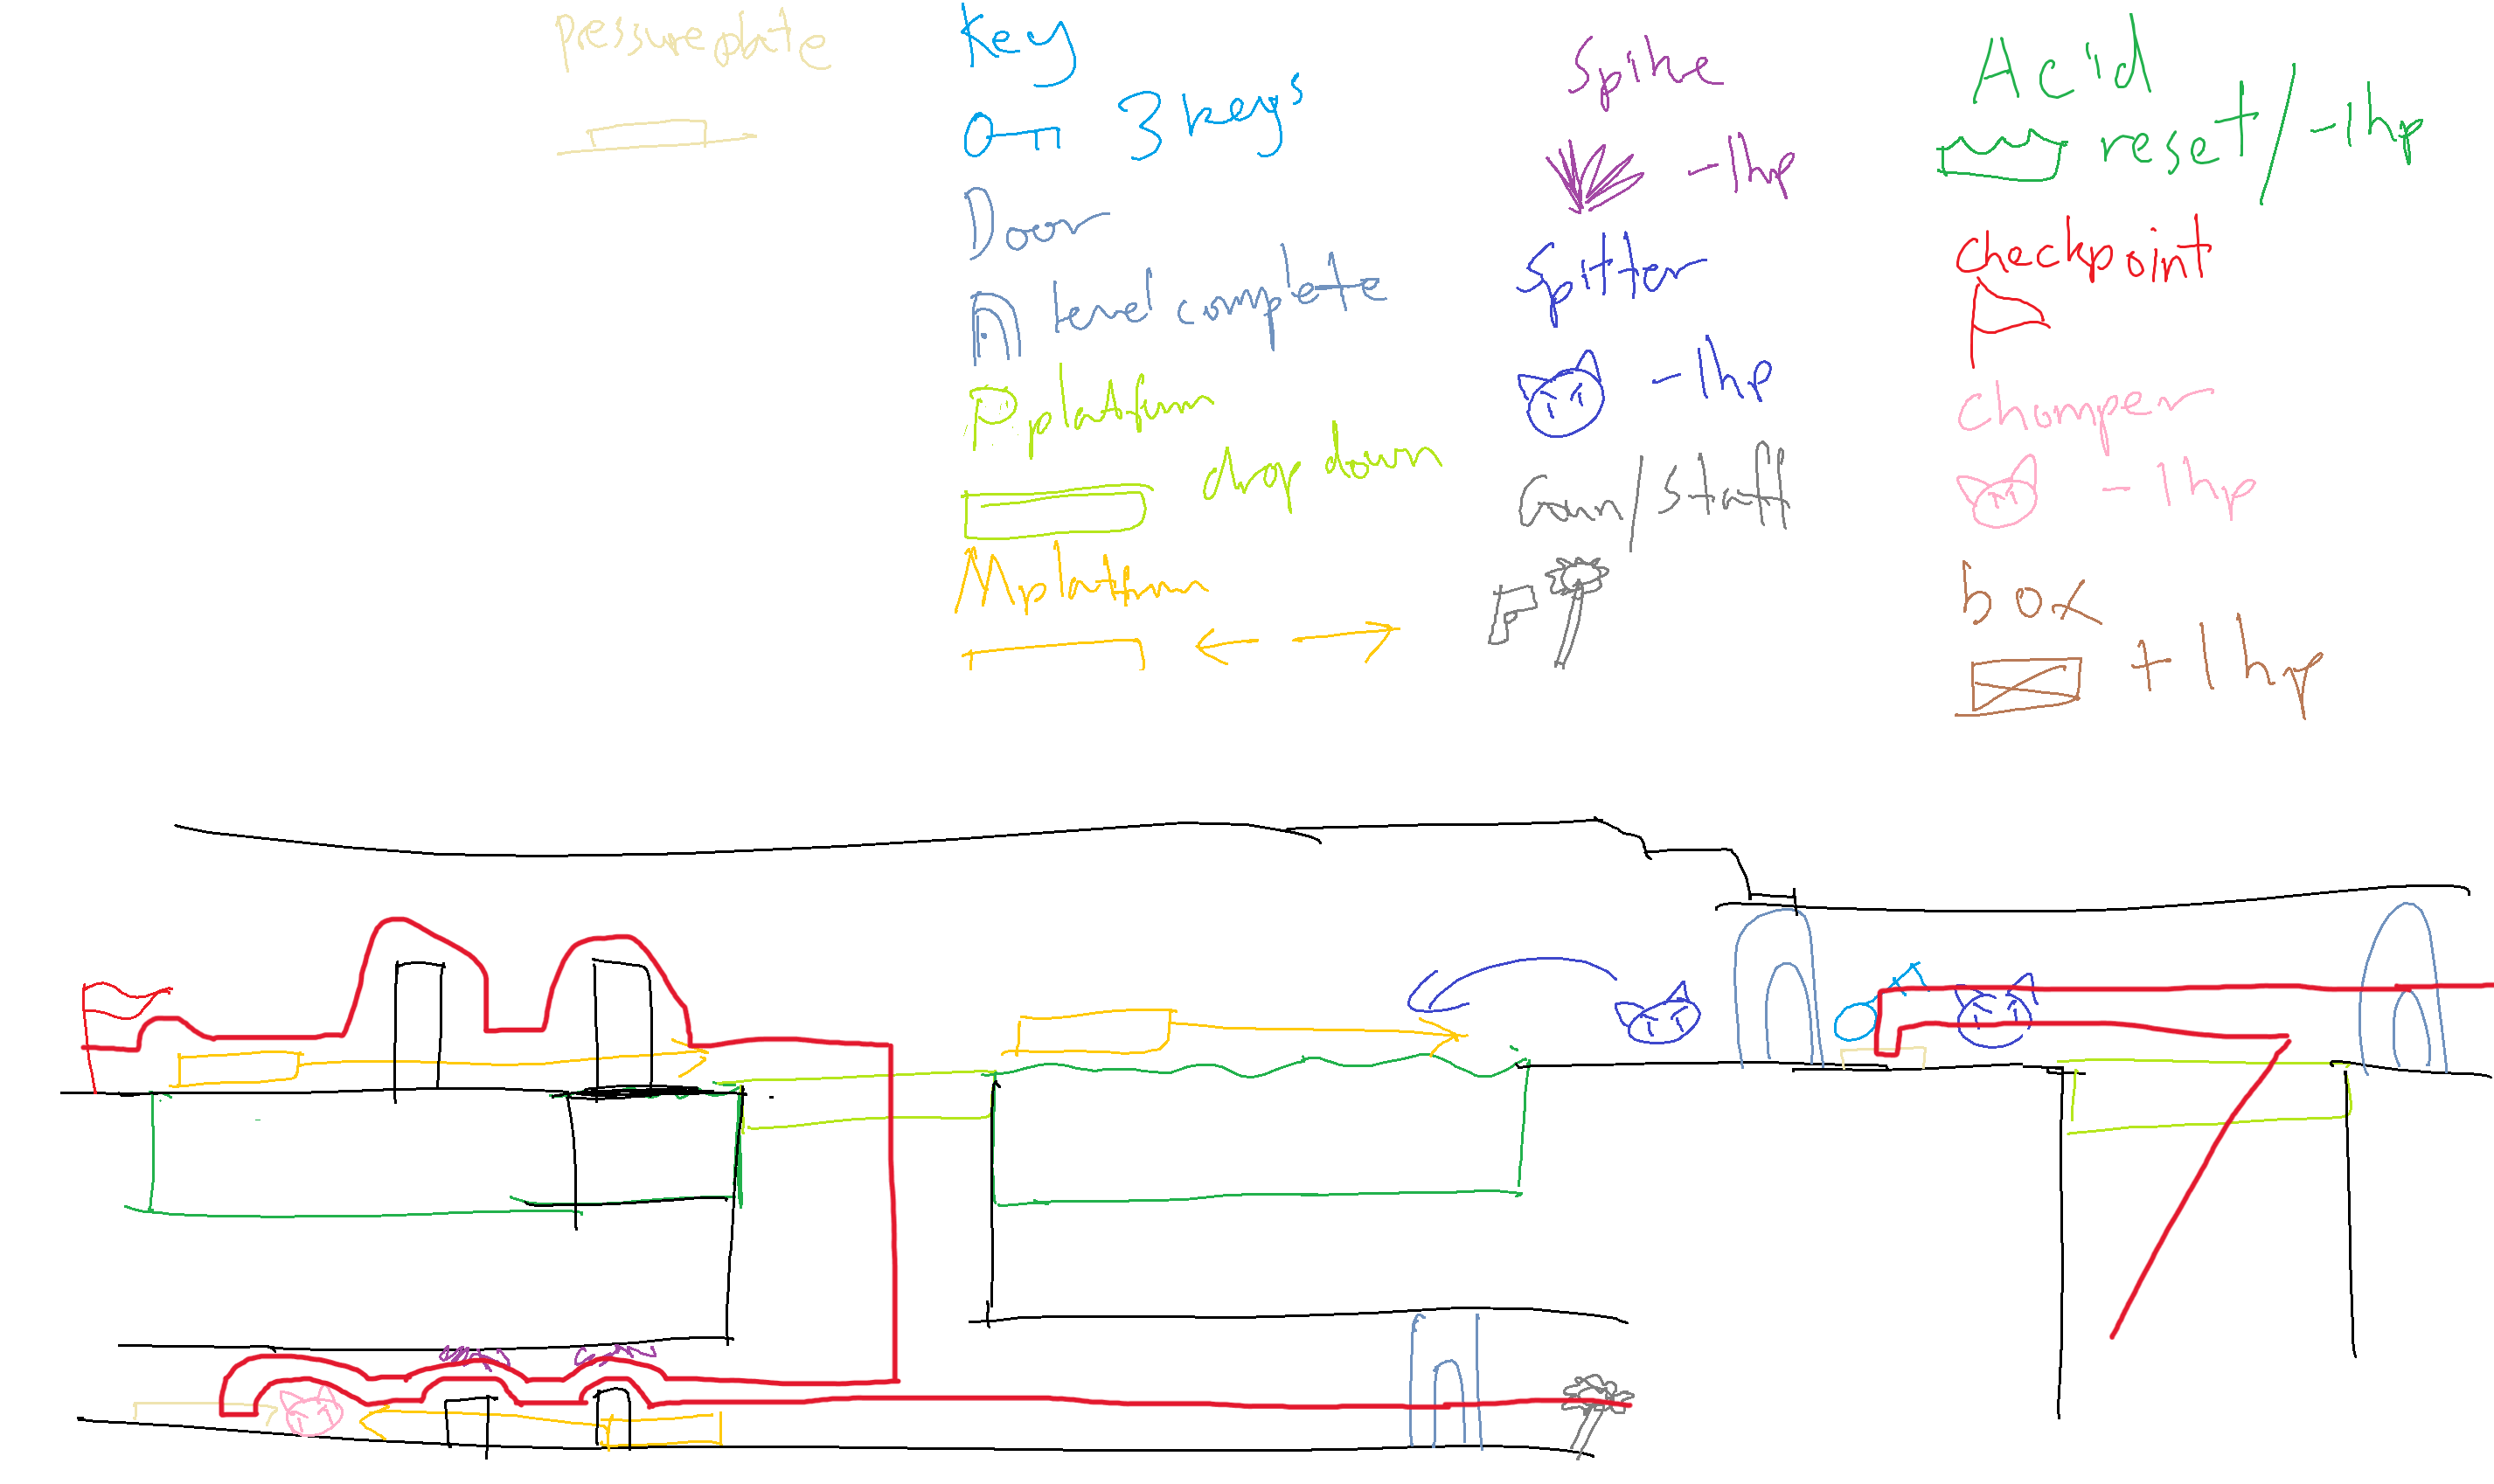 pessureplate
Key
3 keys
Door
level complete
Pplatform
drop down
Mplatform
Spike
-1hp
Spitter
-1hp
Gun/Staff
Acid
reset/-1hp
checkpoint
Chomper
-1hp
box
+1hp